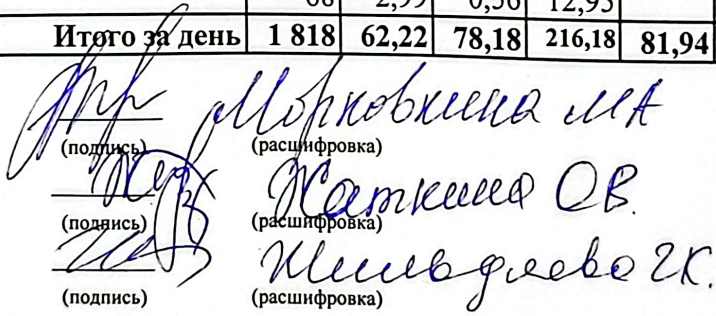 68 2,99 0,56 12,95
Итого за день 1 818 62,22 78,18 216,18 81,94
Морковкина МА
(подпись) (расшифровка)
Каткина ОВ.
(подпись) (расшифровка)
ГК.
(подпись) (расшифровка)